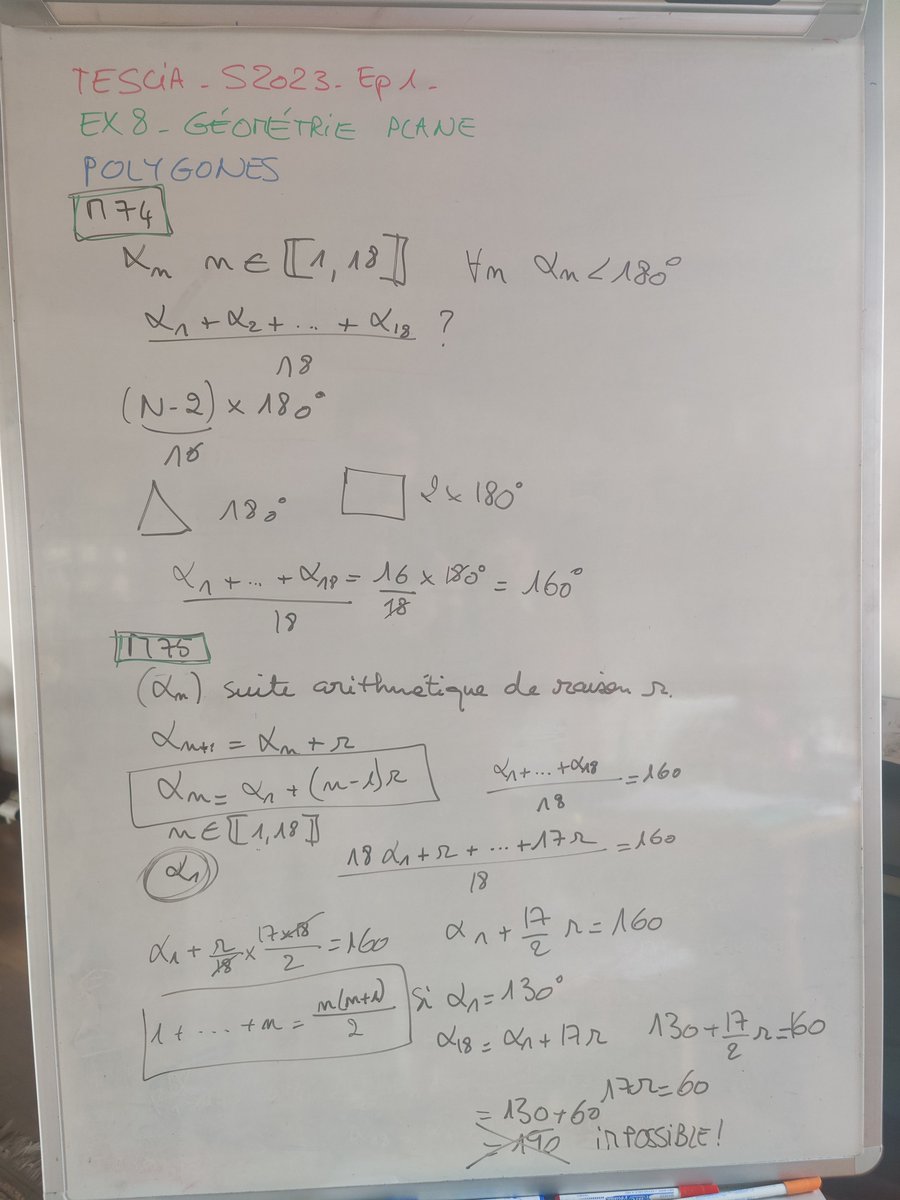 TESCIA - S2023 - Ep1 -
EX 8 - GÉOMÉTRIE PLANE
POLYGONES
M74
αn n ∈ ⟦1, 18⟧ ∀n αn < 180°
(α1 + α2 + ... + α18)/18 ?
(N-2) × 180°
16
180° 2 × 180°
(α1 + ... + α18)/18 = 16/18 × 180° = 160°
M75
(αn) suite arithmétique de raison r.
αn+1 = αn + r
αn = α1 + (n-1)r (α1 + ... + α18)/18 = 160
n ∈ ⟦1, 18⟧
α1 (18 α1 + r + ... + 17r)/18 = 160
α1 + r/18 × (17×18)/2 = 160 α1 + 17/2 r = 160
1 + ... + n = n(n+1)/2 si α1 = 130°
α18 = α1 + 17r 130 + 17/2 r = 160
17r = 60
= 130 + 60
= 190 IMPOSSIBLE !